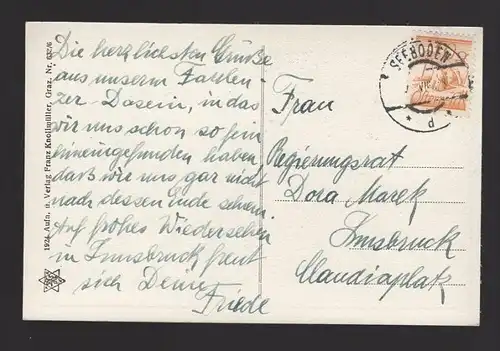 Die herzlichsten Grüße
aus unserm Faulen
zer-Dasein, in das
wir uns schon so fein
hineingefunden haben,
daß wir uns gar nicht
nach dessen Ende sehnen.
Auf frohes Wiedersehen
in Innsbruck freut
sich Deine
Friede
1924 Aufn. u. Verlag Franz Knollmüller, Graz. Nr.
SEEBODEN
d
Frau
Regierungsrat
Dora Marek
Innsbruck
Claudiaplatz